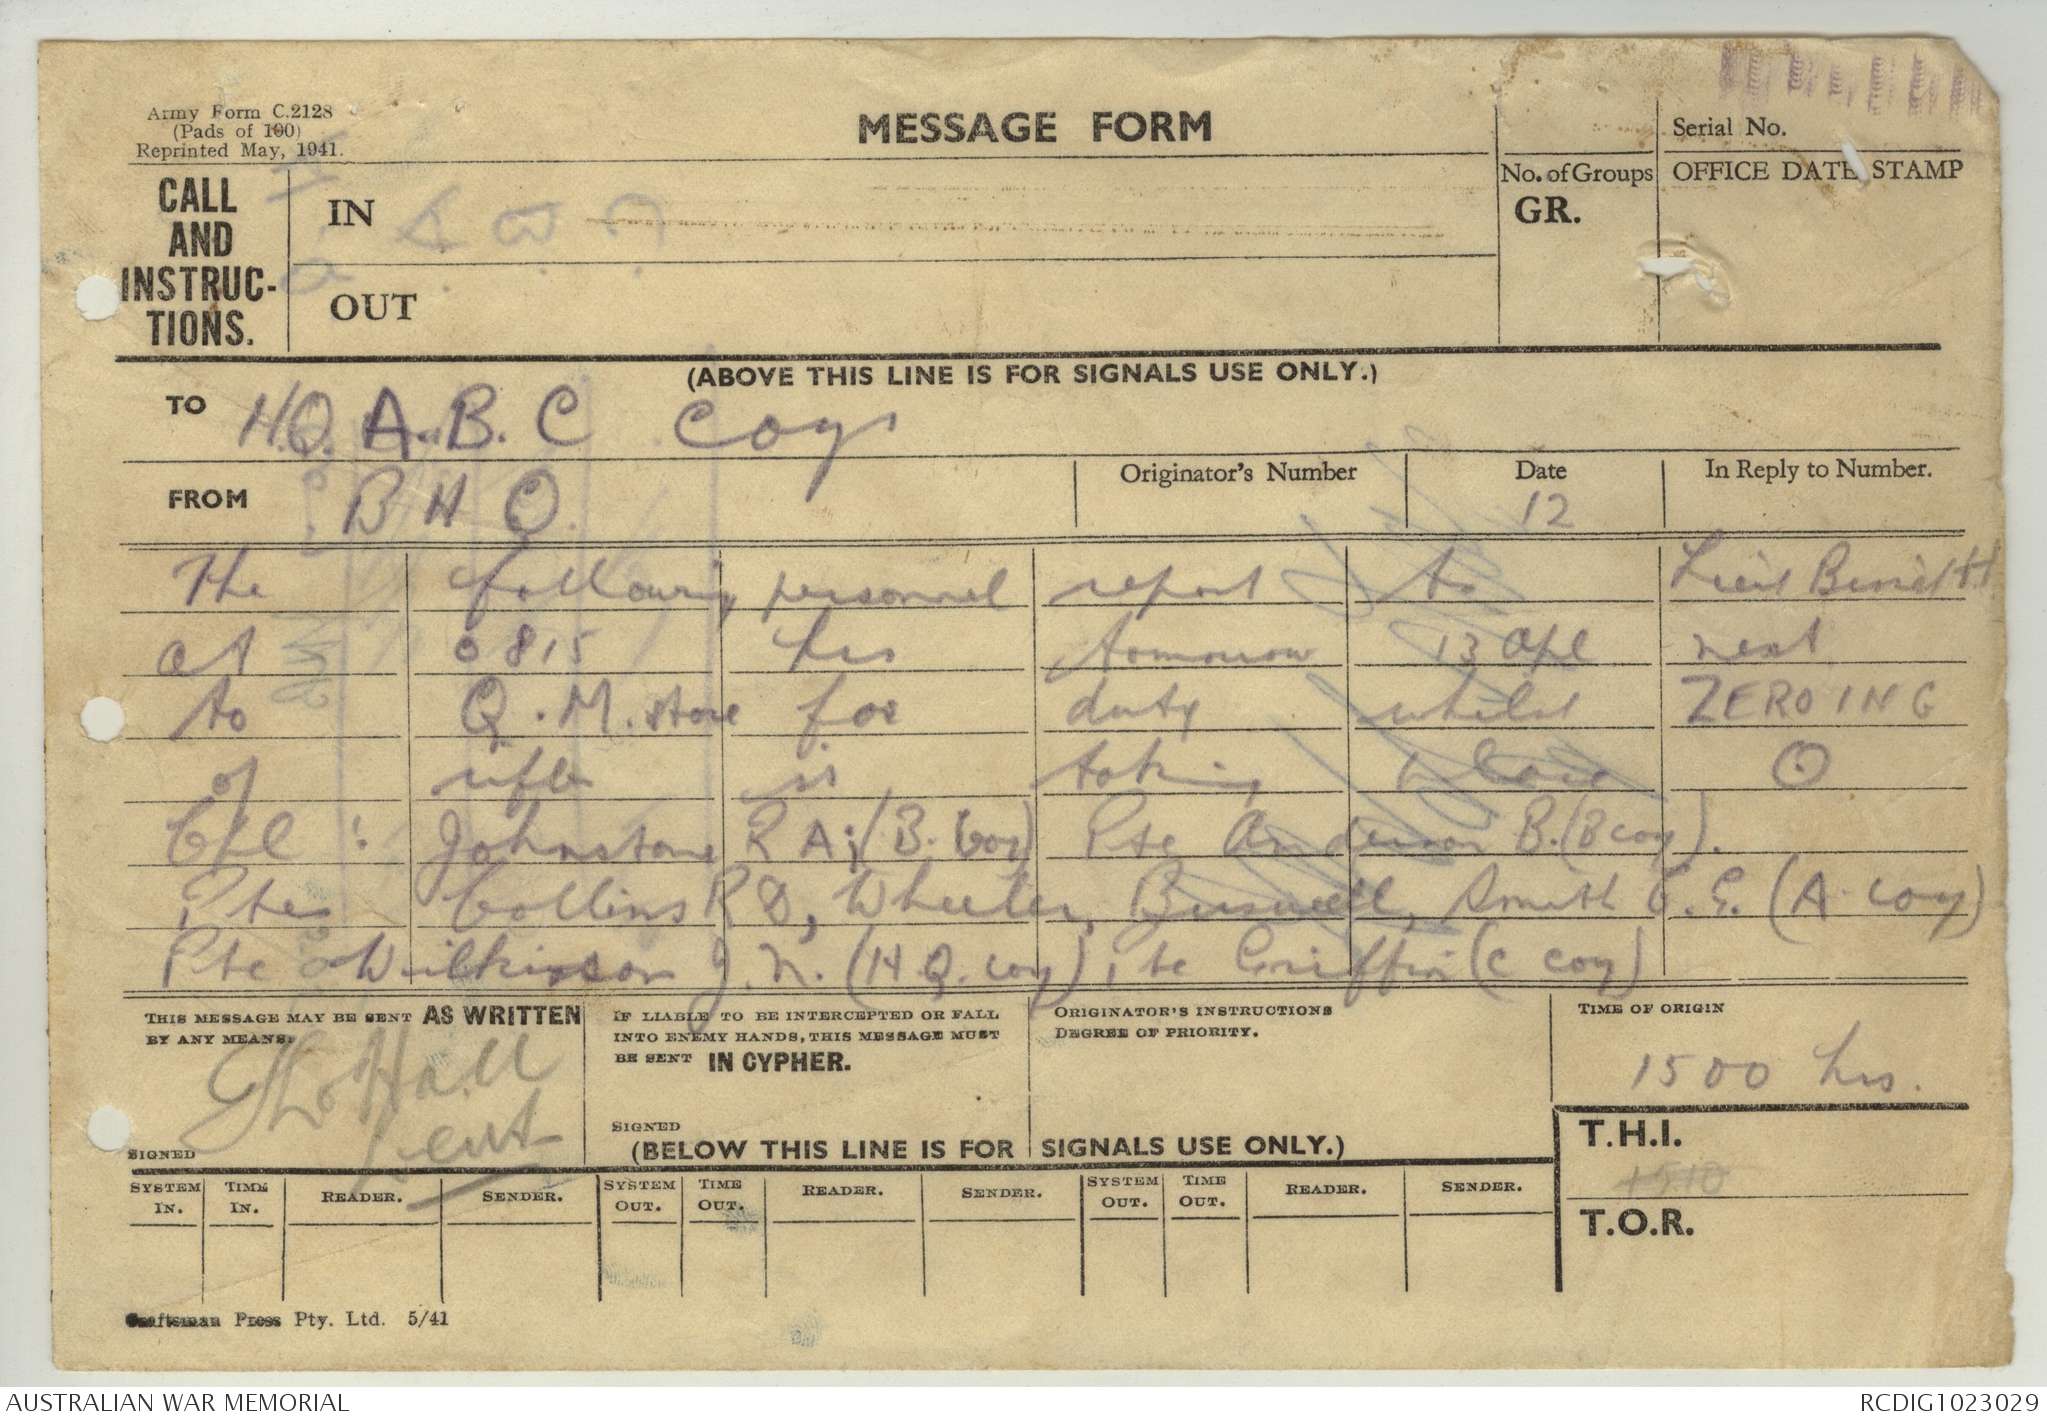 Army Form C.2128
(Pads of 100)
Reprinted May, 1941.
MESSAGE FORM
Serial No.
CALL AND INSTRUC-TIONS.
IN
OUT
No. of Groups
GR.
OFFICE DATE STAMP
(ABOVE THIS LINE IS FOR SIGNALS USE ONLY.)
TO H.Q. A. B. C Coys
FROM B H Q.
Originator's Number
Date
12
In Reply to Number.
The following personnel report to Lieut Bennett
at 0815 hrs tomorrow 13 Apl next
to Q.M. store for duty whilst ZEROING
of rifles is taking place O
Cpl : Johnstone R A; (B. Coy) Pte Anderson B. (B coy).
Ptes Collins R D, Wheeler, Buswell, Smith C. E. (A coy)
Pte Wilkinson J. N. (H.Q. coy), Pte Griffin (C coy)
THIS MESSAGE MAY BE SENT AS WRITTEN
BY ANY MEANS.
Hall
Lieut
SIGNED
IF LIABLE TO BE INTERCEPTED OR FALL
INTO ENEMY HANDS, THIS MESSAGE MUST
BE SENT IN CYPHER.
SIGNED
ORIGINATOR'S INSTRUCTIONS
DEGREE OF PRIORITY.
TIME OF ORIGIN
1500 hrs.
(BELOW THIS LINE IS FOR SIGNALS USE ONLY.)
T.H.I.
1510
T.O.R.
SYSTEM IN. TIME IN. READER. SENDER. SYSTEM OUT. TIME OUT. READER. SENDER. SYSTEM OUT. TIME OUT. READER. SENDER.
Craftsman Press Pty. Ltd. 5/41
AUSTRALIAN WAR MEMORIAL
RCDIG1023029